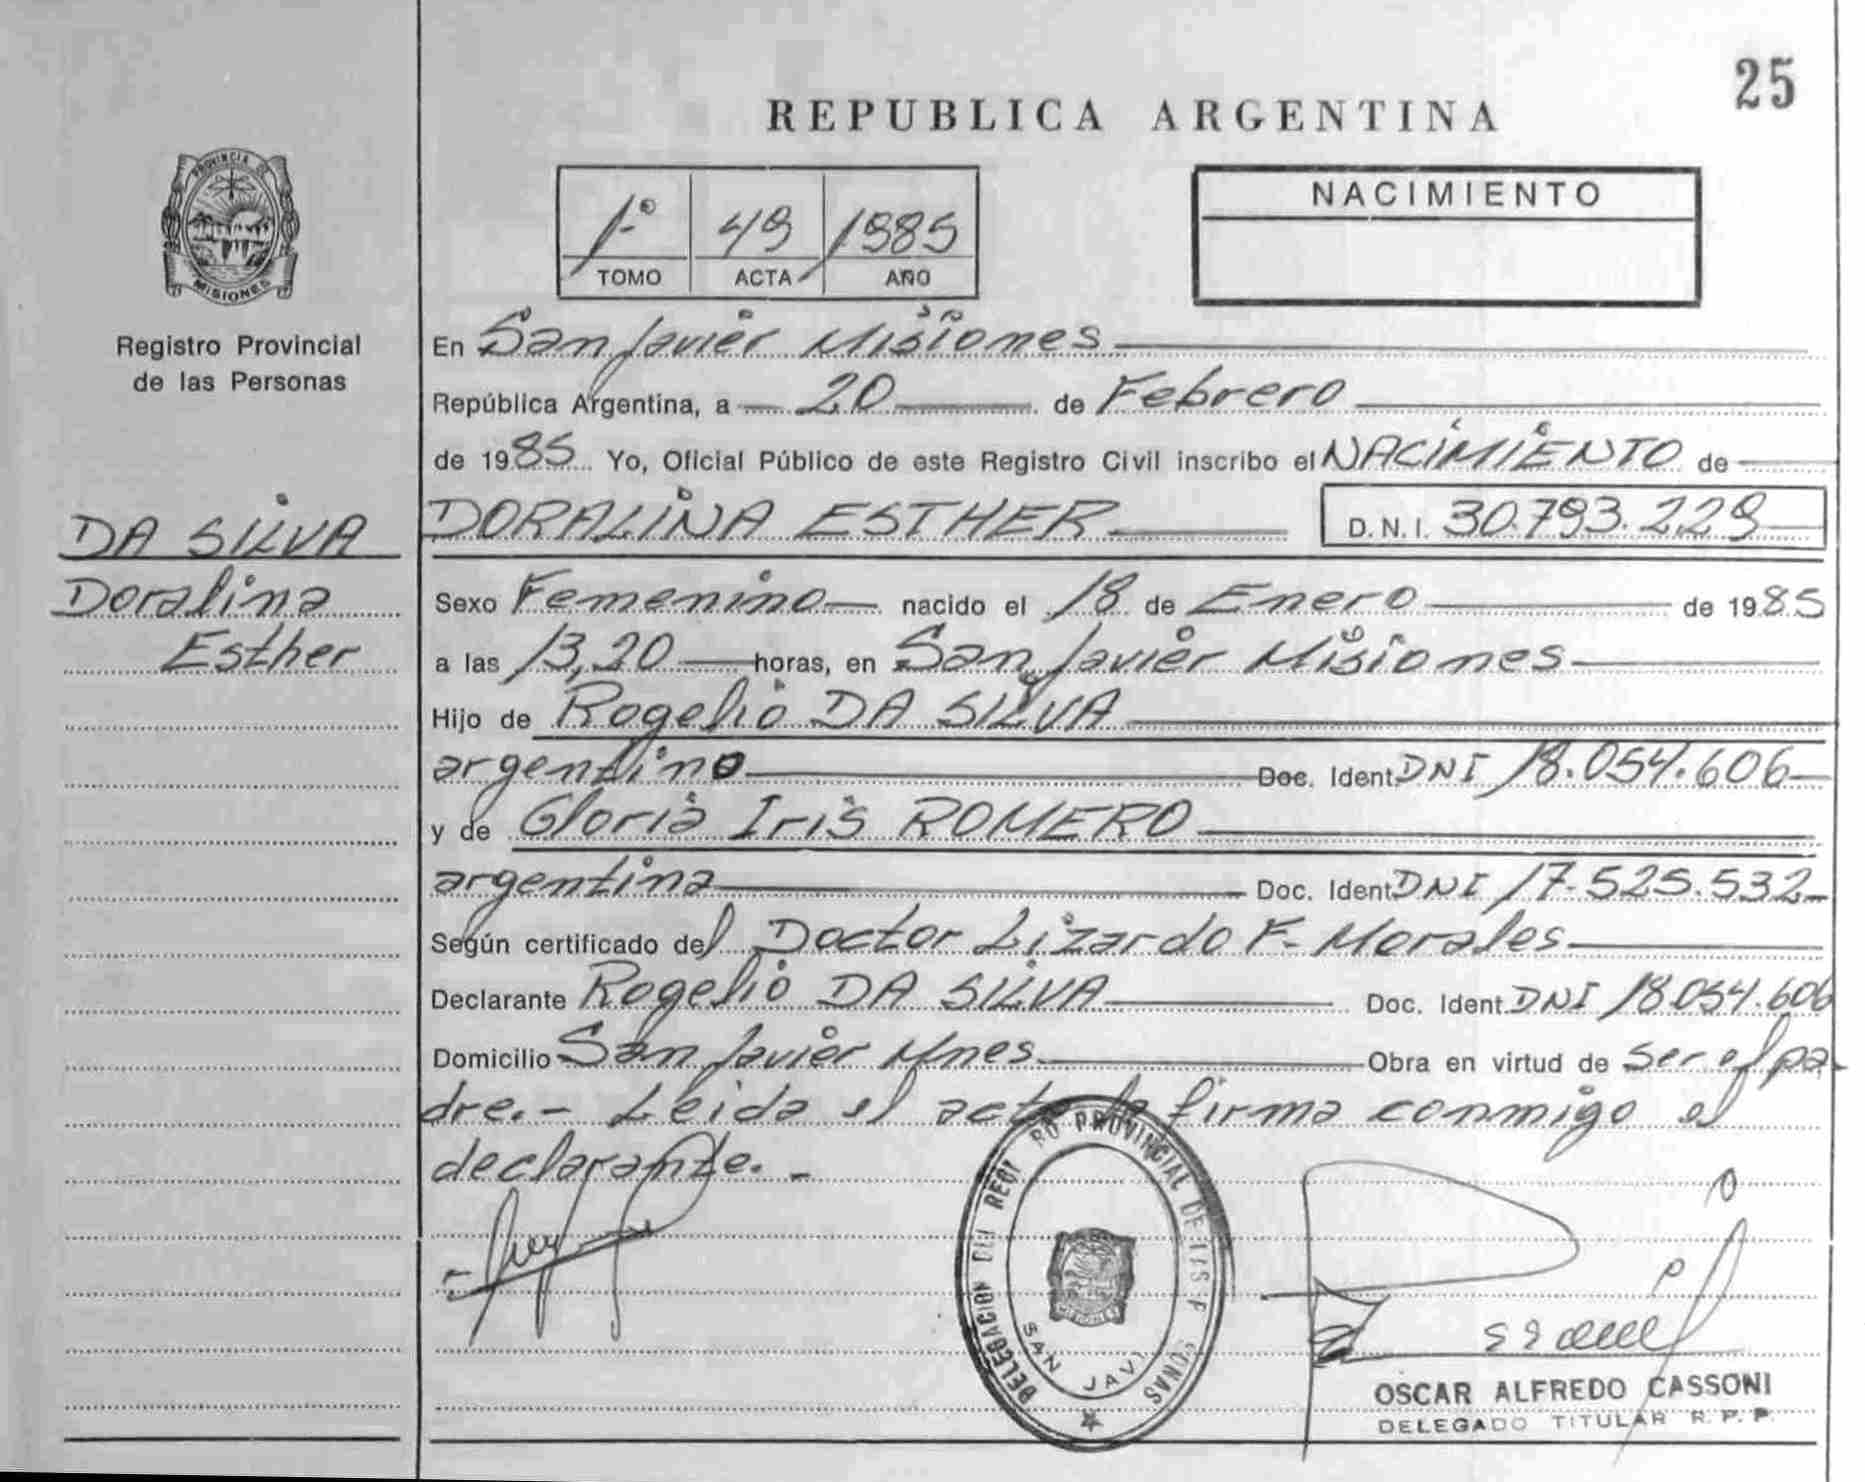 25
REPUBLICA ARGENTINA
PROVINCIA DE
MISIONES
Registro Provincial
de las Personas
1º 49 1985
TOMO ACTA AÑO
NACIMIENTO
En San Javier Misiones
República Argentina, a 20 de Febrero
de 1985 Yo, Oficial Público de este Registro Civil inscribo el NACIMIENTO de
DORALINA ESTHER D.N.I. 30.793.229
DA SILVA
Doralina
Esther
Sexo Femenino nacido el 18 de Enero de 1985
a las 13,20 horas, en San Javier Misiones
Hijo de Rogelio DA SILVA
argentino Doc. Ident. DNI 18.054.606
y de Gloria Iris ROMERO
argentina Doc. Ident. DNI 17.525.532
Según certificado del Doctor Lizardo F. Morales
Declarante Rogelio DA SILVA Doc. Ident. DNI 18.054.606
Domicilio San Javier Mnes. Obra en virtud de ser el pa-
dre.- Leida el acta la firma conmigo el
declarante.-
DELEGACION DEL REGI RO PROVINCIAL DE
SAN JAVI
OSCAR ALFREDO CASSONI
DELEGADO TITULAR R. P. P.